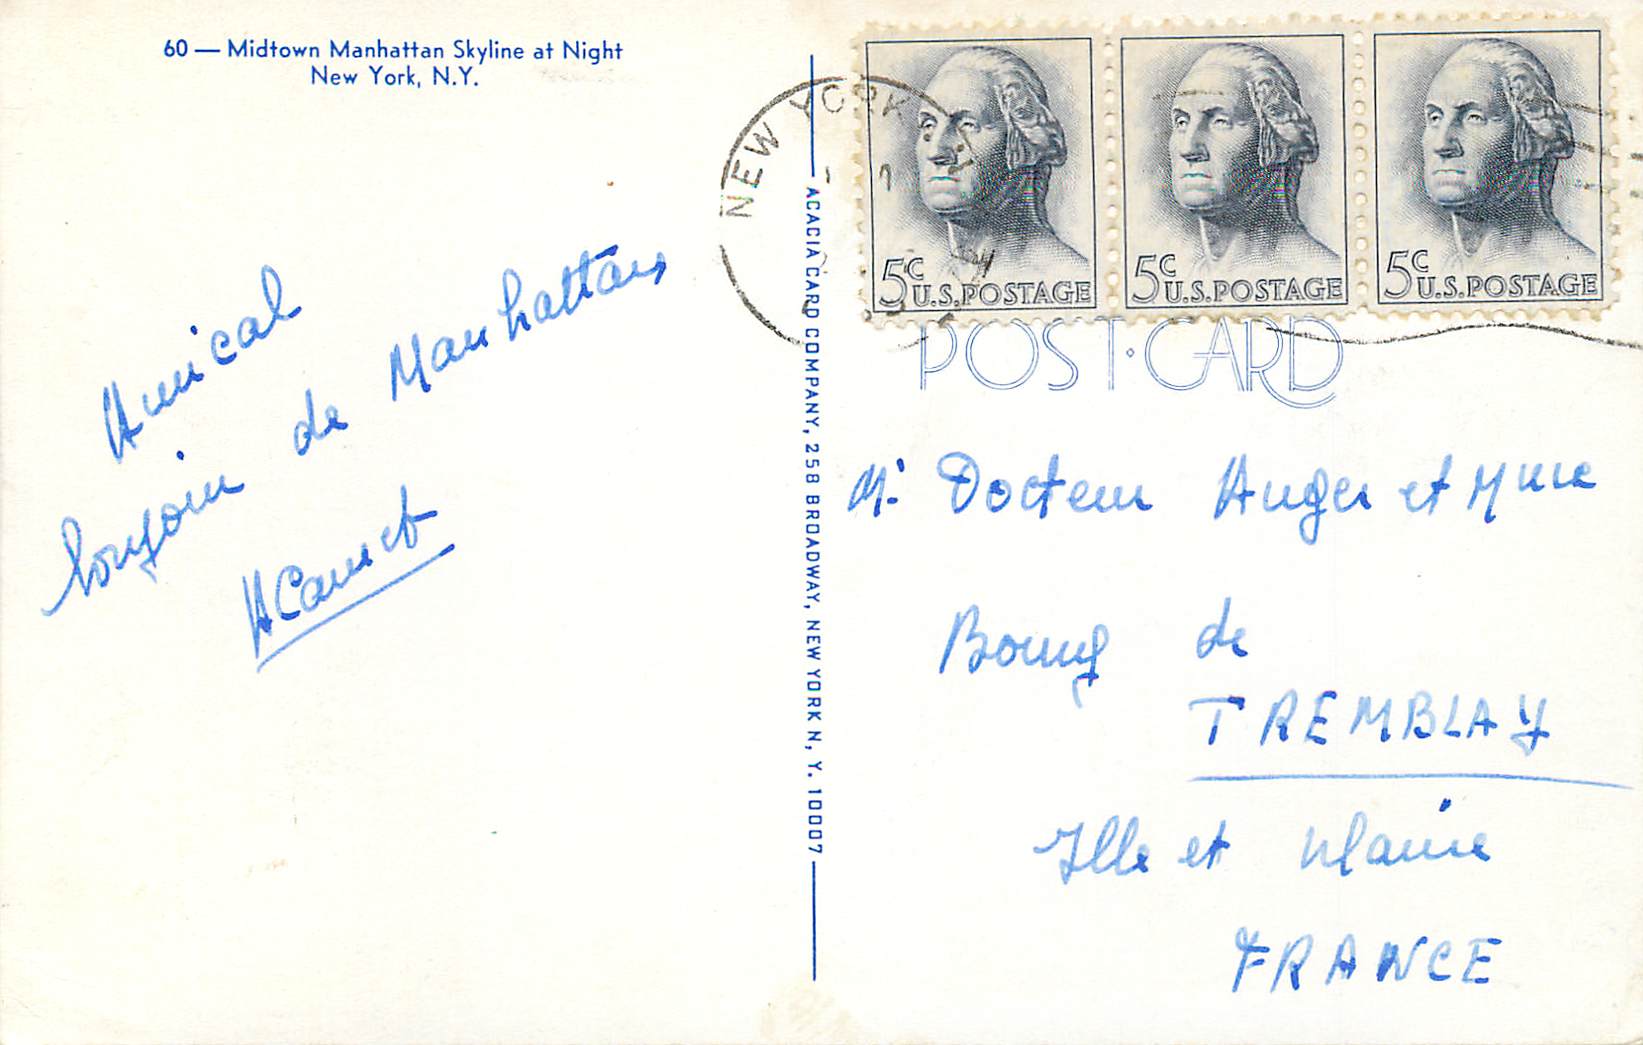 60 — Midtown Manhattan Skyline at Night
New York, N.Y.
Amical
bonjour de Manhattan
ACACIA CARD COMPANY, 258 BROADWAY, NEW YORK N, Y. 10007
NEW YORK
5c U.S. POSTAGE
5c U.S. POSTAGE
5c U.S. POSTAGE
POST·CARD
Mr Docteur Auger et Mme
Bourg de
TREMBLAY
Ille et Vilaine
FRANCE